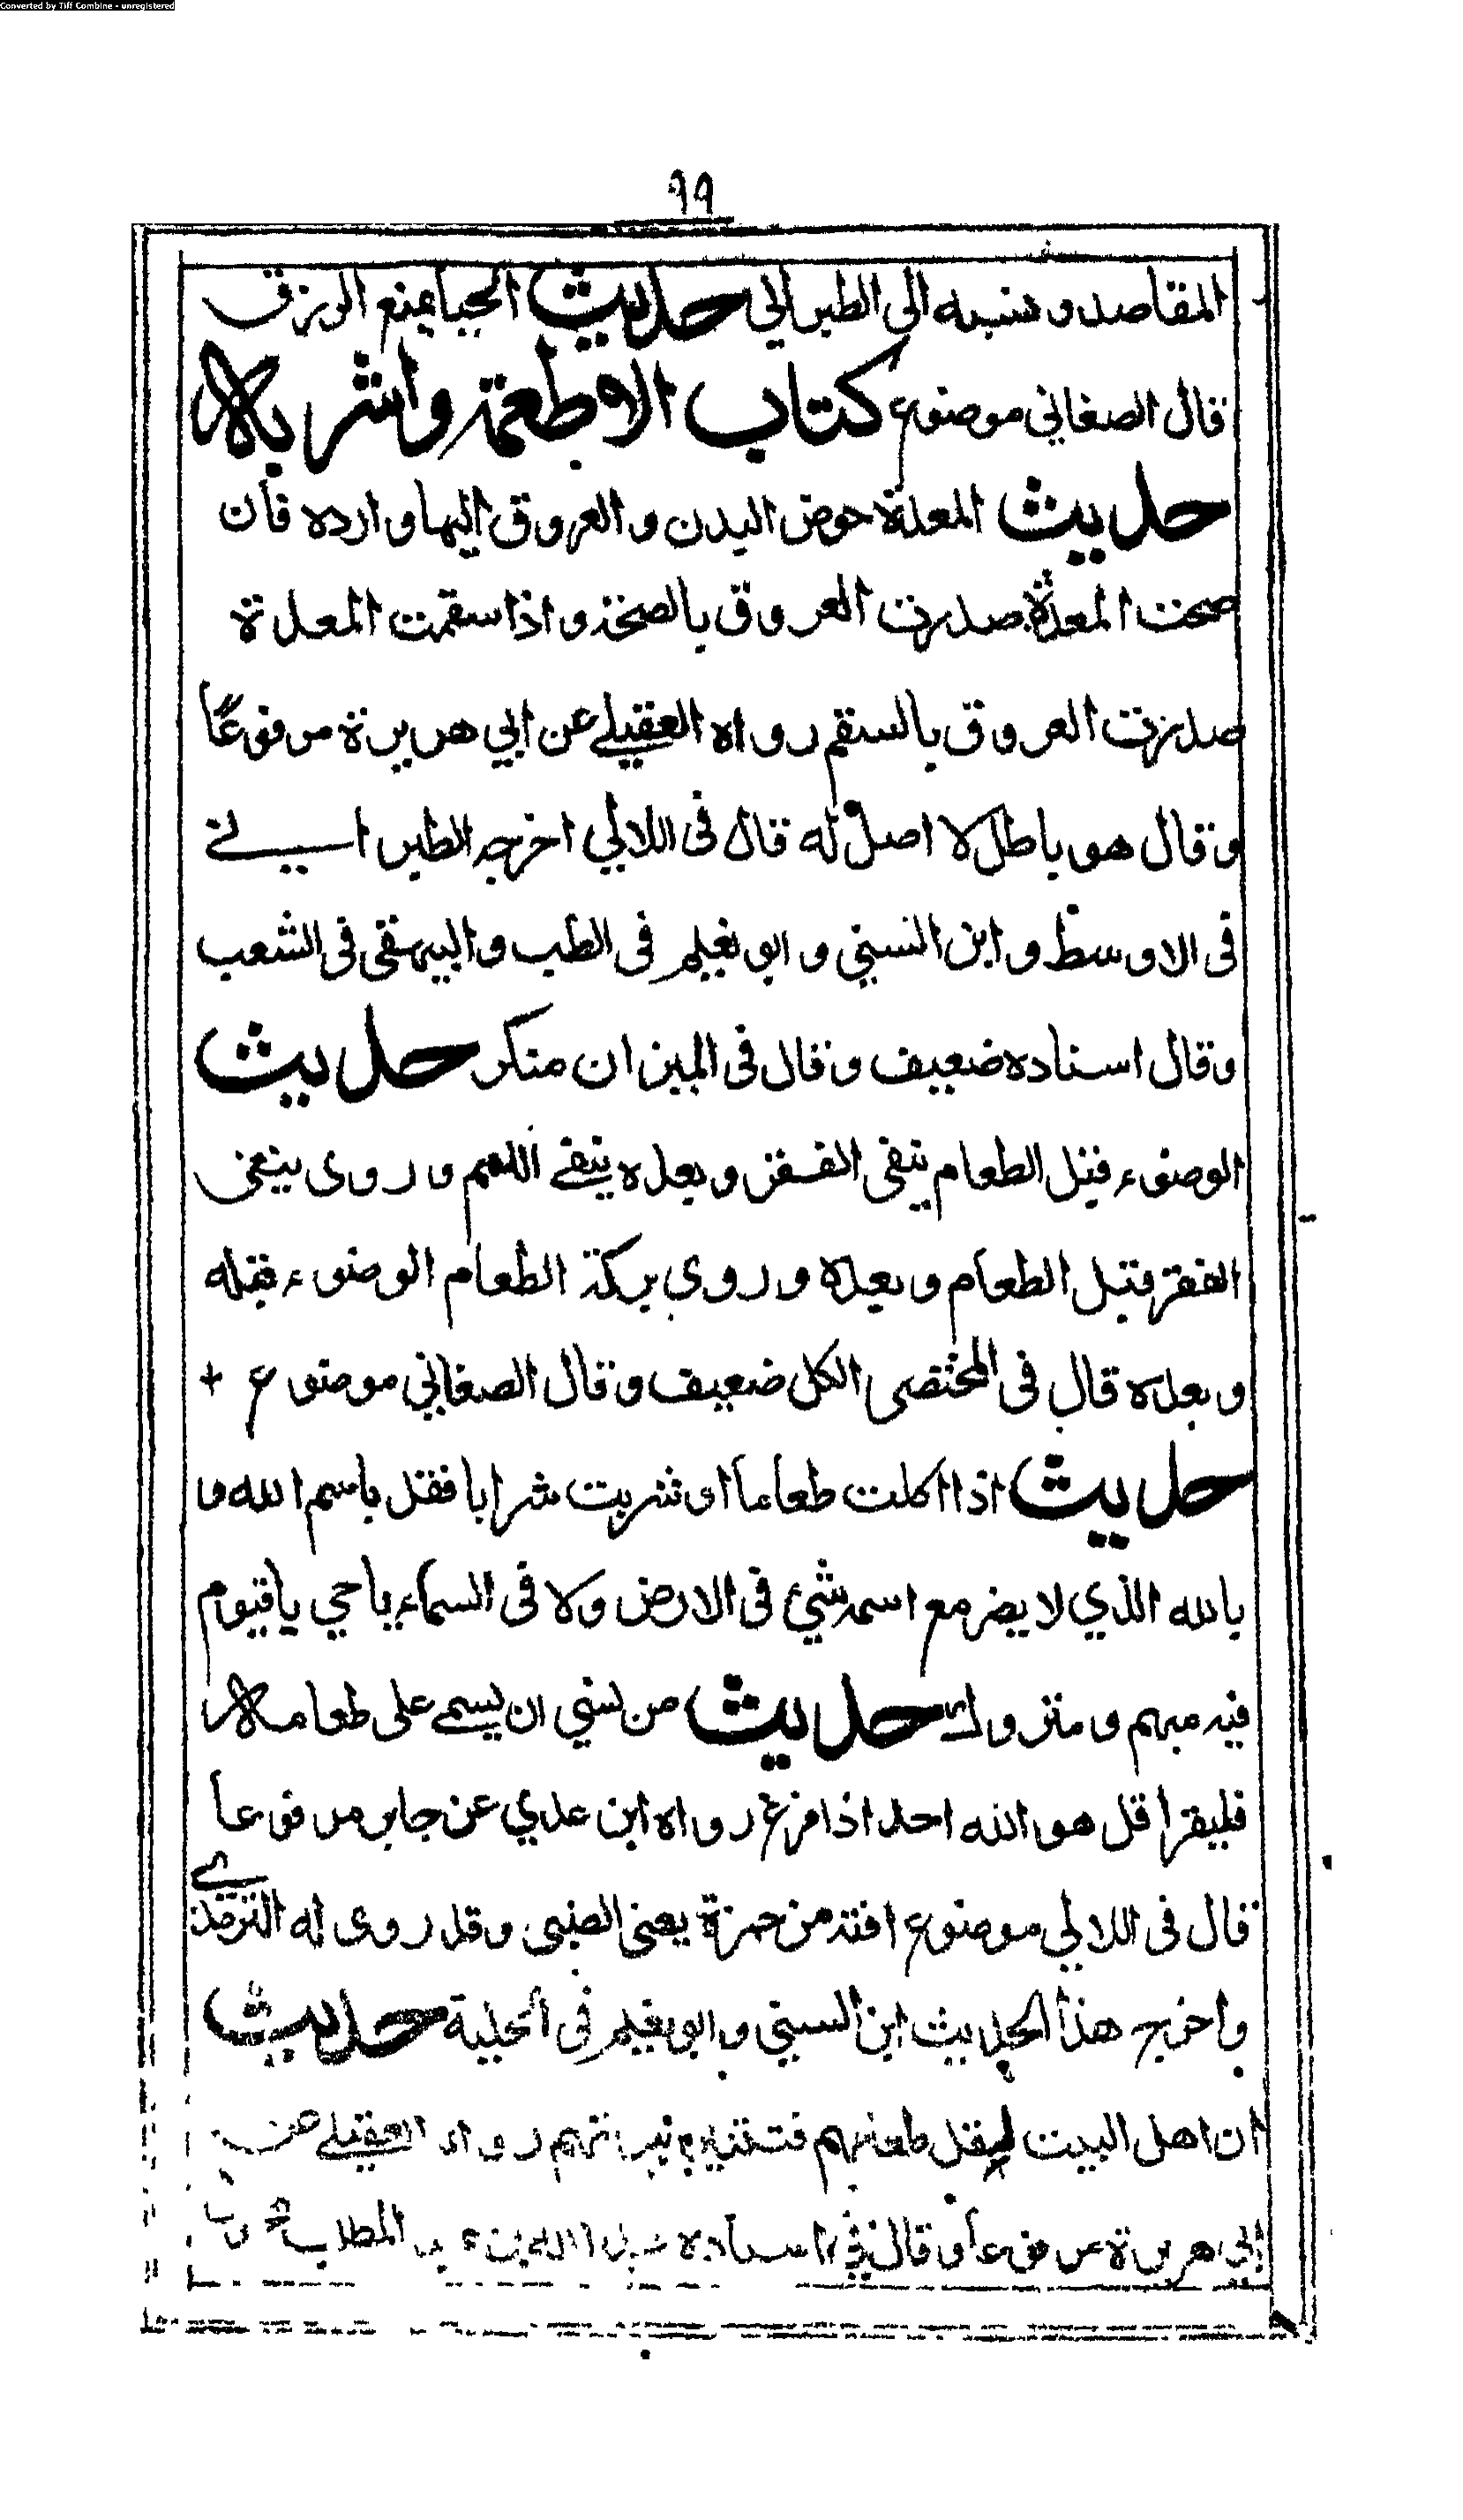 Converted by Tiff Combine - unregistered
٩٩
المقاصد ونسبه الى الطبراني حديث الحيا يمنع الرزق
قال الصغاني موضوع كتاب الاطعمة والاشربة
حديث المعدة حوض البدن والعروق اليها واردة فان
صحت المعدة صدرت العروق بالصحة واذا سقمت المعدة
صدرت العروق بالسقم رواه العقيلي عن ابي هريرة مرفوعًا
وقال هو باطل لا اصل له قال فى اللالي اخرجه الطبراسيني
فى الاوسط وابن السني وابو نعيم فى الطب والبيهقى فى الشعب
وقال اسناده ضعيف وقال فى الميزان منكر حديث
الوضوء قبل الطعام ينفى الفقر وبعده ينفي اللمم وروى ينفى
الفقر قبل الطعام وبعده وروي بركة الطعام الوضوء قبله
وبعده قال فى المختصر الكل ضعيف وقال الصغاني موضوع +
حديث اذا اكلت طعاماً او شربت شرابا فقل باسم الله و
بالله الذي لا يضر مع اسمه شئ فى الارض ولا فى السماء يا حي يا قيوم
فيه مبهم ومتروك حديث من نسي ان يسمي على طعامه
فليقرا قل هو الله احد اذا فرغ رواه ابن عدي عن جابر مرفوعا
قال فى اللالي موضوع افته من حمزة يعنى النصيبى وقد روى له الترمذي
واخرج هذا الحديث ابن السني وابو نعيم فى الحلية حديث
ان اهل البيت ليقل طعمهم فتستنير بيوتهم رواه العقيلي عن
ابي هريرة مرفوعاً وقال في اسناده عبد الله بن المطلب